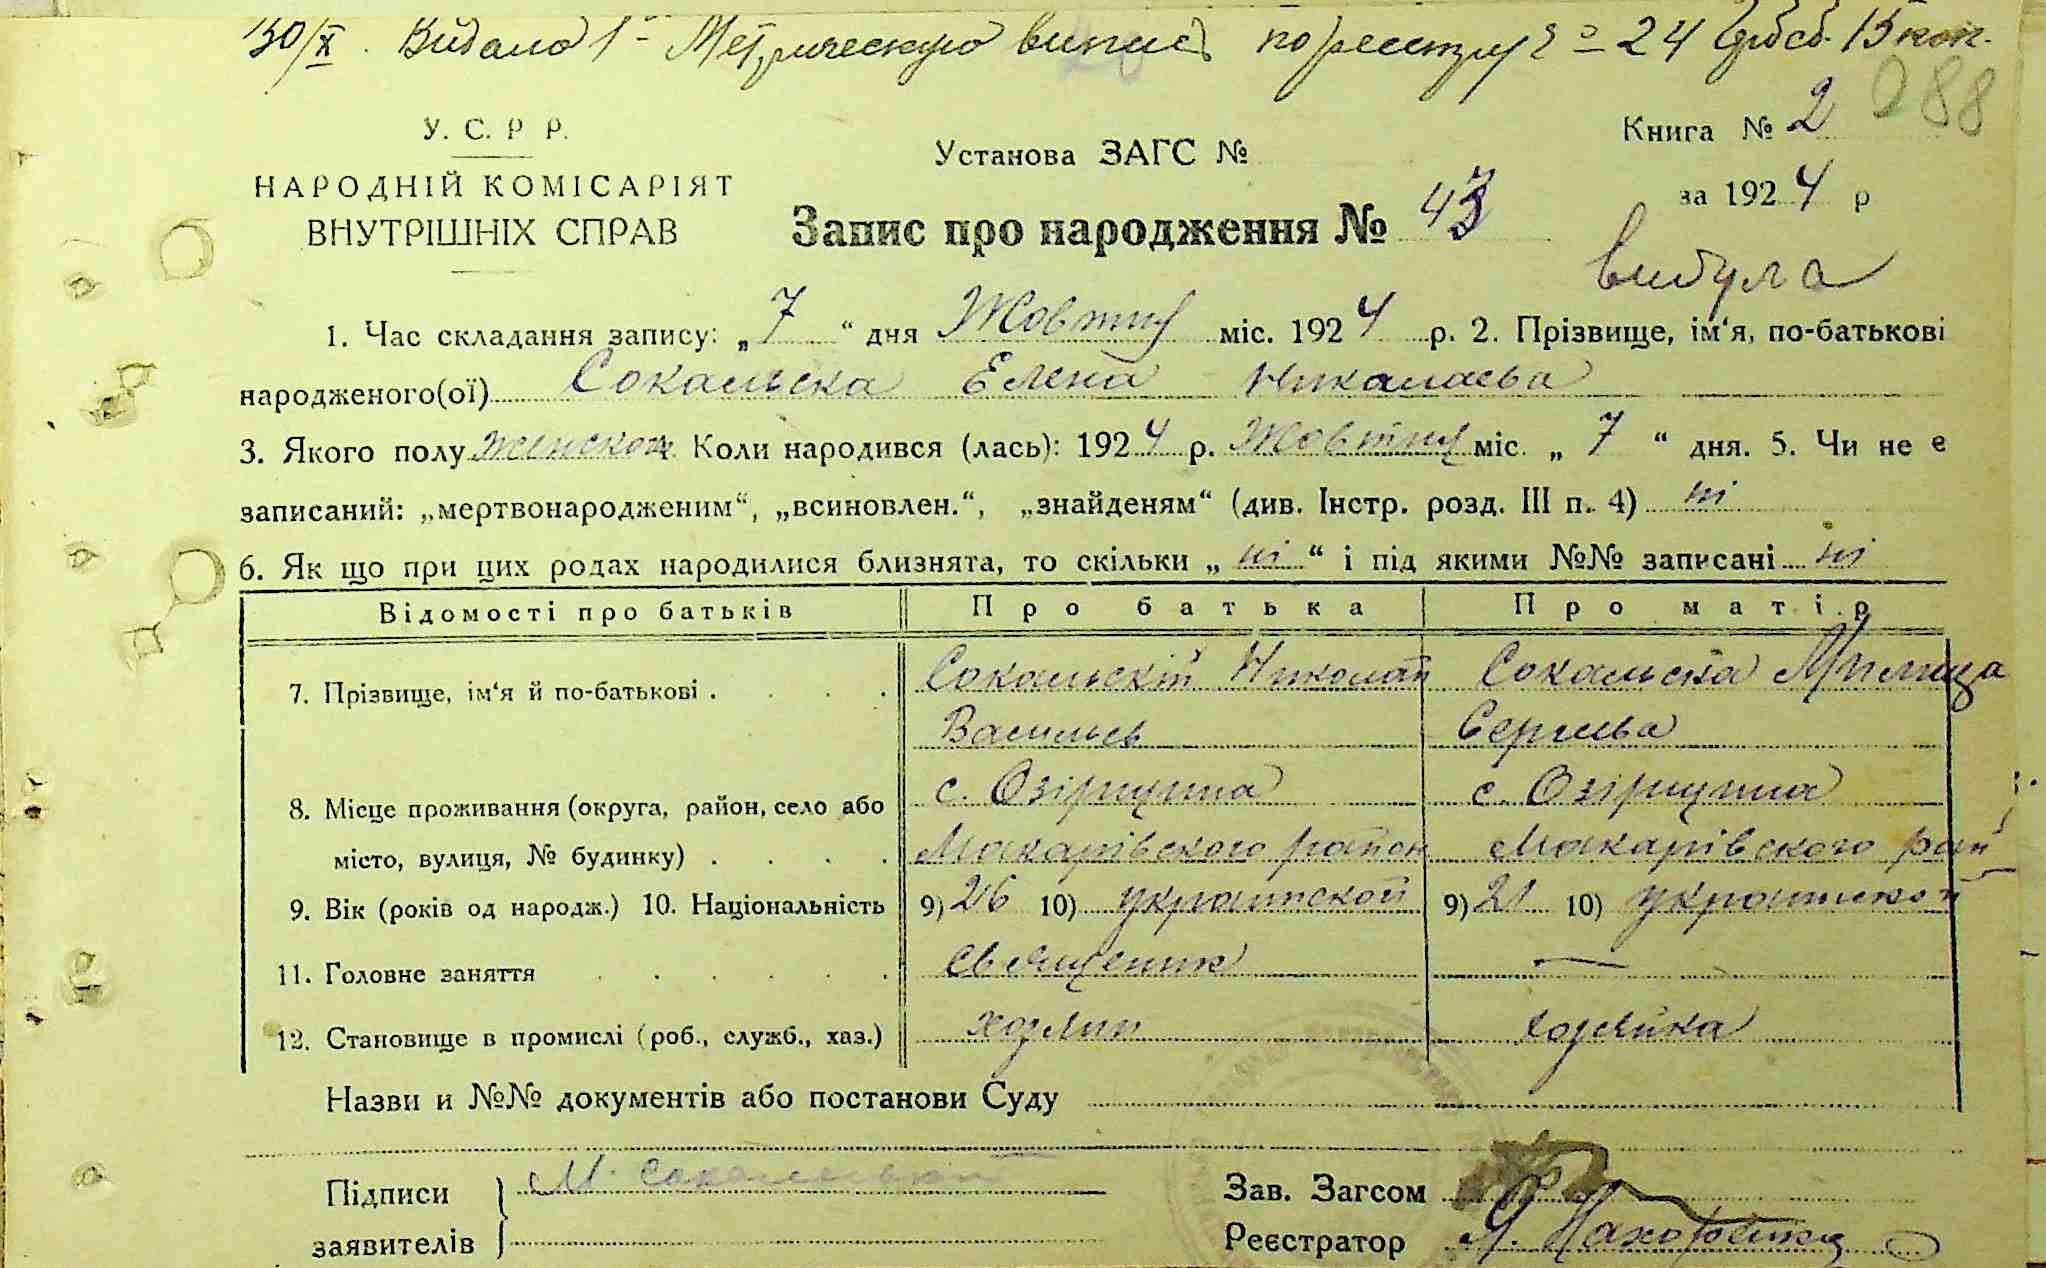 30/X. Видано 1 Метрическую випись по реестру № 24 15 коп.
288
У. С. Р Р.
НАРОДНІЙ КОМІСАРІЯТ
ВНУТРІШНІХ СПРАВ
Установа ЗАГС №
Книга № 2
за 1924 р
Запис про народження № 43
вибула
1. Час складання запису: „7“ дня Жовтня міс. 1924 р. 2. Прізвище, ім‘я, по-батькові
народженого(ої) Сокальска Елена Николаева
3. Якого полу женской 4. Коли народився (лась): 1924 р. Жовтня міс. „7“ дня. 5. Чи не є
записаний: „мертвонародженим“, „всиновлен.“, „знайденям“ (див. Інстр. розд. III п. 4) ні
6. Як що при цих родах народилися близнята, то скільки „ні“ і під якими №№ записані ні
Відомості про батьків Про батька Про матір
7. Прізвище, ім‘я й по-батькові . . . . Сокальскій Николай Сокальска Милица
Васильев Сергиева
с. Озірщина с. Озірщина
8. Місце проживання (округа, район, село або
місто, вулиця, № будинку) . . . . Макарівского район Макарівского рай
9. Вік (років од народж.) 10. Національність 9) 26 10) украинской 9) 21 10) украинской
11. Головне заняття . . . . . священик —
12. Становище в промислі (роб., служб., хаз.) хозяин хозяйка
Назви и №№ документів або постанови Суду
Підписи
заявителів
М. Сокальский
Зав. Загсом
Реєстратор